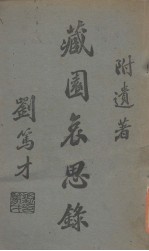 附遺著
藏園哀思錄
劉篤才